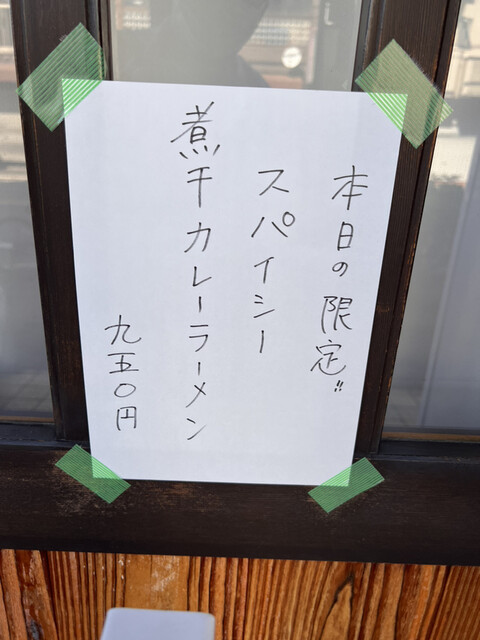 本日の限定!!
スパイシー
煮干カレーラーメン
九五〇円